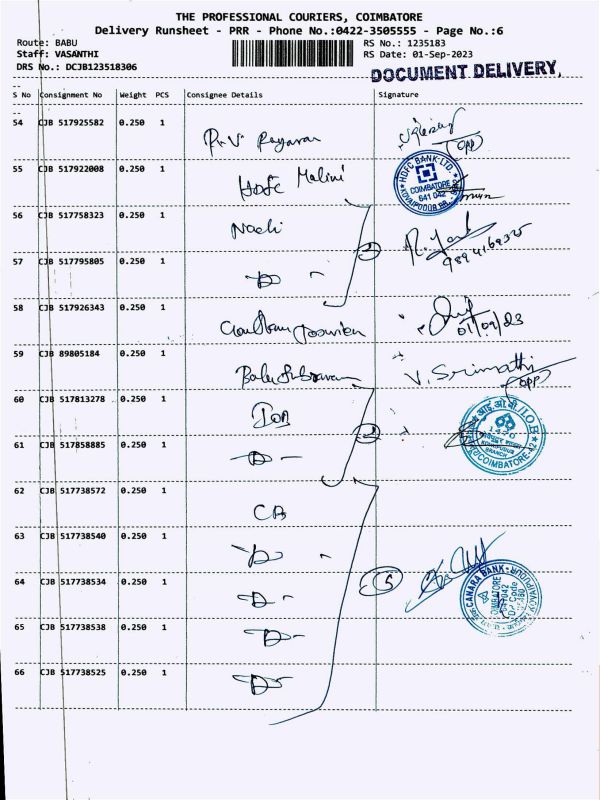 THE PROFESSIONAL COURIERS, COIMBATORE
Delivery Runsheet - PRR - Phone No.:0422-3505555 - Page No.:6
Route: BABU
RS No.: 1235183
Staff: VASANTHI
RS Date: 01-Sep-2023
DRS No.: DCJB123518306
DOCUMENT DELIVERY,
S No Consignment No Weight PCS Consignee Details Signature
54 CJB 517925582 0.250 1
(OPP)
55 CJB 517922008 0.250 1 HDFC Malini
HDFC BANK LTD.
COIMBATORE
641 042
56 CJB 517758323 0.250 1
57 CJB 517795805 0.250 1
58 CJB 517926343 0.250 1
01/09/23
59 CJB 89805184 0.250 1 V. Srimathi
(OPP)
60 CJB 517813278 0.250 1 IOB
आई.ओ.बी./I.O.B
1420
BRANCH
COIMBATORE-42
61 CJB 517858885 0.250 1
62 CJB 517738572 0.250 1 CB
63 CJB 517738540 0.250 1
5
CANARA BANK
COIMBATORE
641 042
DP Code
64 CJB 517738534 0.250 1
65 CJB 517738538 0.250 1
66 CJB 517738525 0.250 1